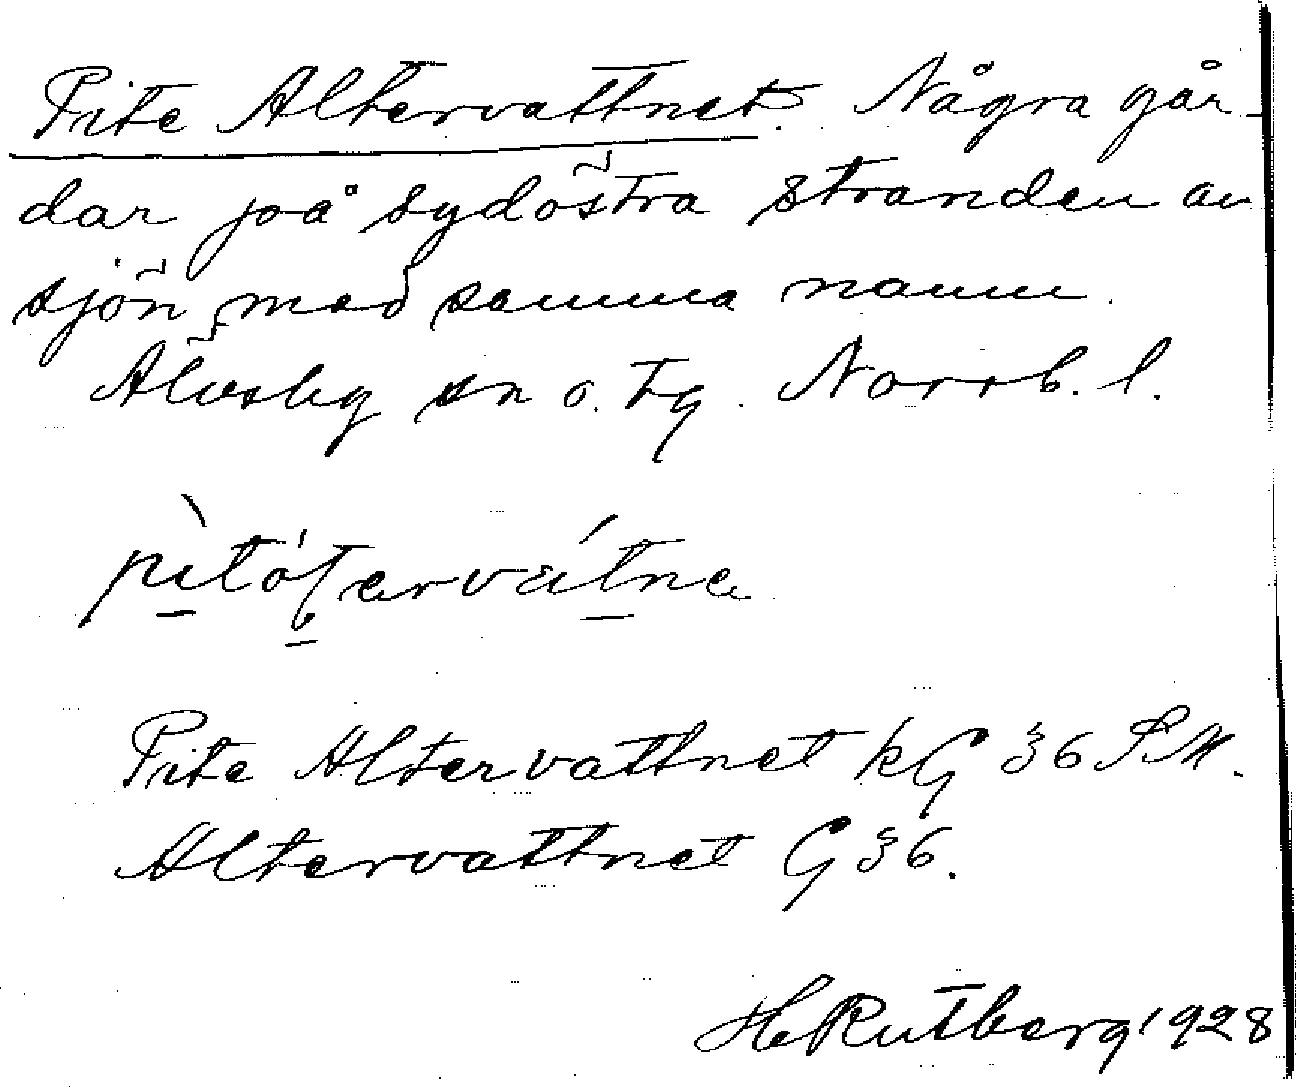 Pite Altervattnet. Några går-
dar på sydöstra stranden av
sjön med samma namn.
Älvsby sn o. tg. Norrb. l.
Pite Altervattnet kG 36 S.M.
Altervattnet G 36.
H Rutberg 1928